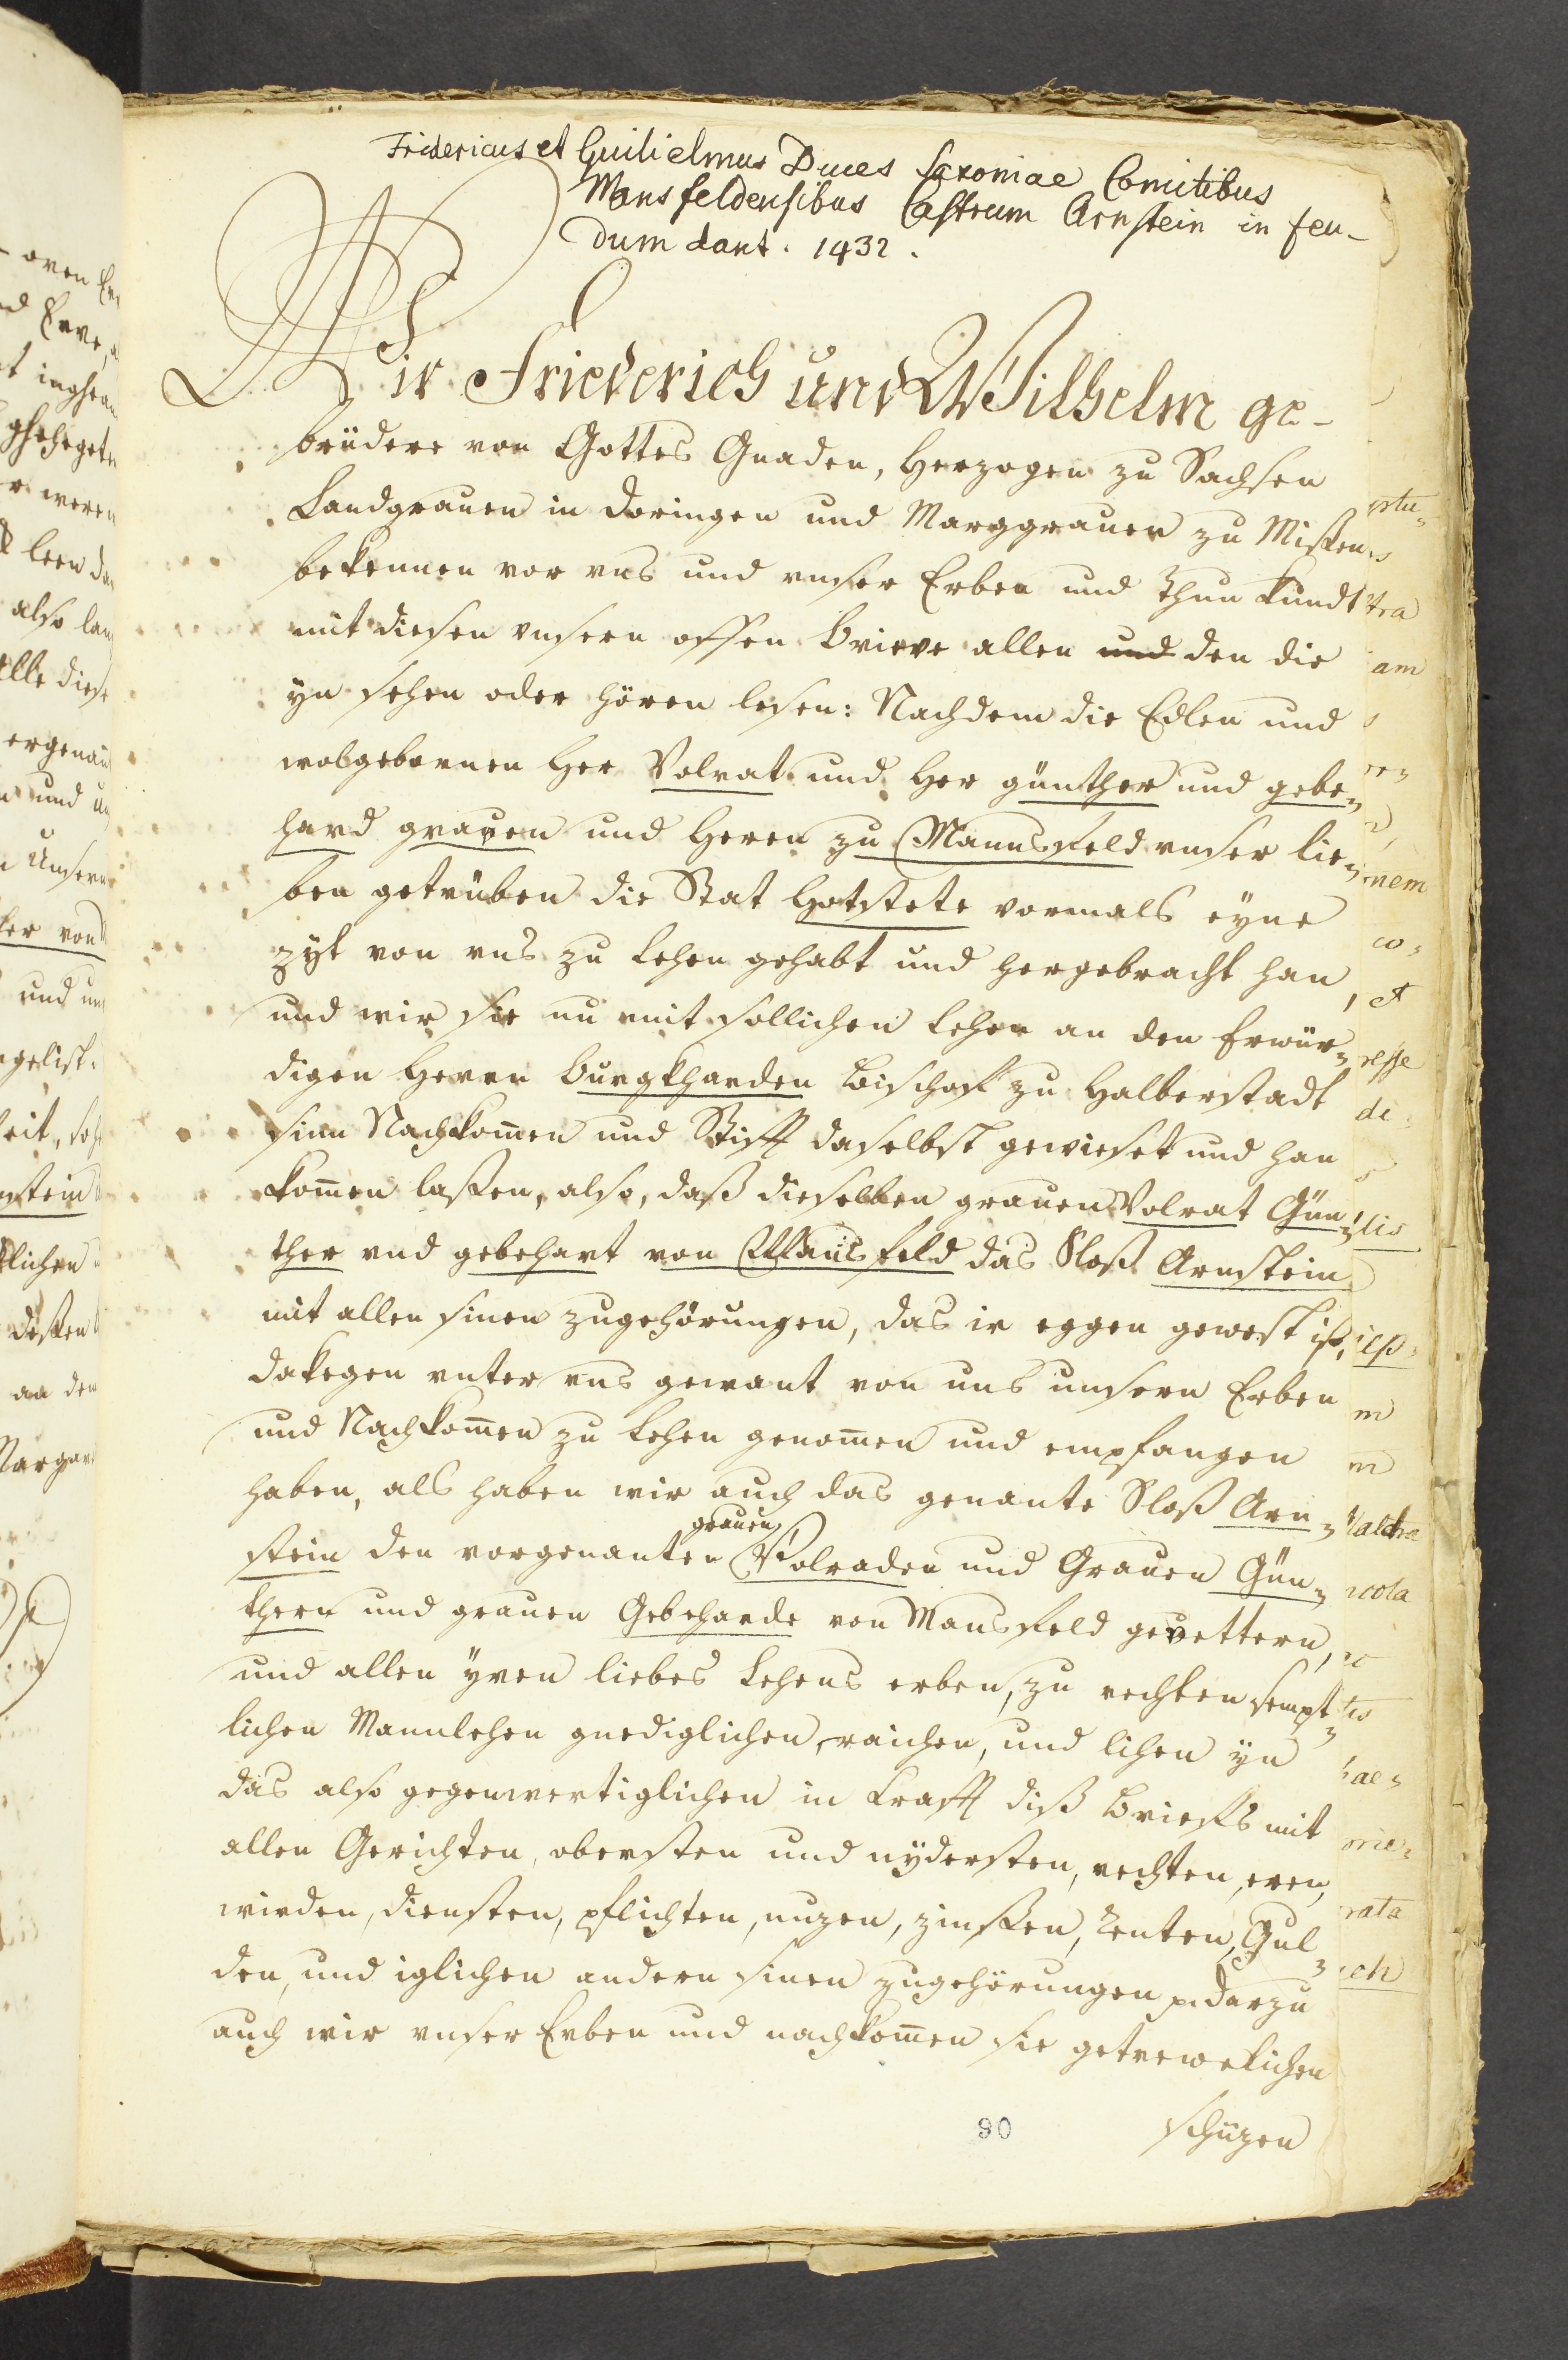 Fridericus et Guilielmus Duces Saxoniae Comitibus
Mansfeldensibus Castrum Arnstein in feu-
dum dant. 1432.
Wir Friederich und Wilhelm ge-
brüdere von Gottes Gnaden, Herzogen zu Sachsen
Landgrauen in Doringen und Marggrauen zu Missen
bekennen vor uns und unser Erben und thun kundt
mit diesen unsern offen brieve allen und den die
yn sehen oder hören lesen: Nachdem die Edlen und
wolgebornnen Her Volrat und Her günther und gebe-
hard grauen und Heren zu Mannsfeld unser lie-
ben getrüben die Stat Hetstete vormals eyne
zyt von uns zu Lehen gehabt und hergebracht han,
und wir sie nu mit sollichen Lehen an den Erwür-
digen Herrn Burgkharden Bischoff zu Halberstadt
sinn Nachkomen und Stifft daselbst gewieset und han
komen lassen, also, daß dieselben grauen Volrat Gün-
ther und gebehart von Mansfeld das Sloß Arnstein
mit allen sinen zugehörungen, das ir eggen gewest ist,
dakegen unter uns gewant von uns unsern Erben
und Nachkomen zu Lehen genomen und empfangen
haben, als haben wir auch das genante Sloß Arn-
stein den vorgenanten grauen Volraden und Grauen Gün-
thern und grauen Gebeharde von Mansfeld gevettern,
und allen yren liebes Lehens erben, zu rechten sempt-
lichen Mannlehen gnediglichen, raichen, und lihen yn
das also gegenwertiglichen in krafft diß Brieffs mit
allen Gerichten, obersten und nydersten, rechten, eren,
wirden, diensten, pflichten, nuzen, zinssen, renten, Gul-
den, und iglichen andern sinen zugehörungen p. Darzu
auch wir unser Erben und nachkomen sie getrewelichen
80
schüzen